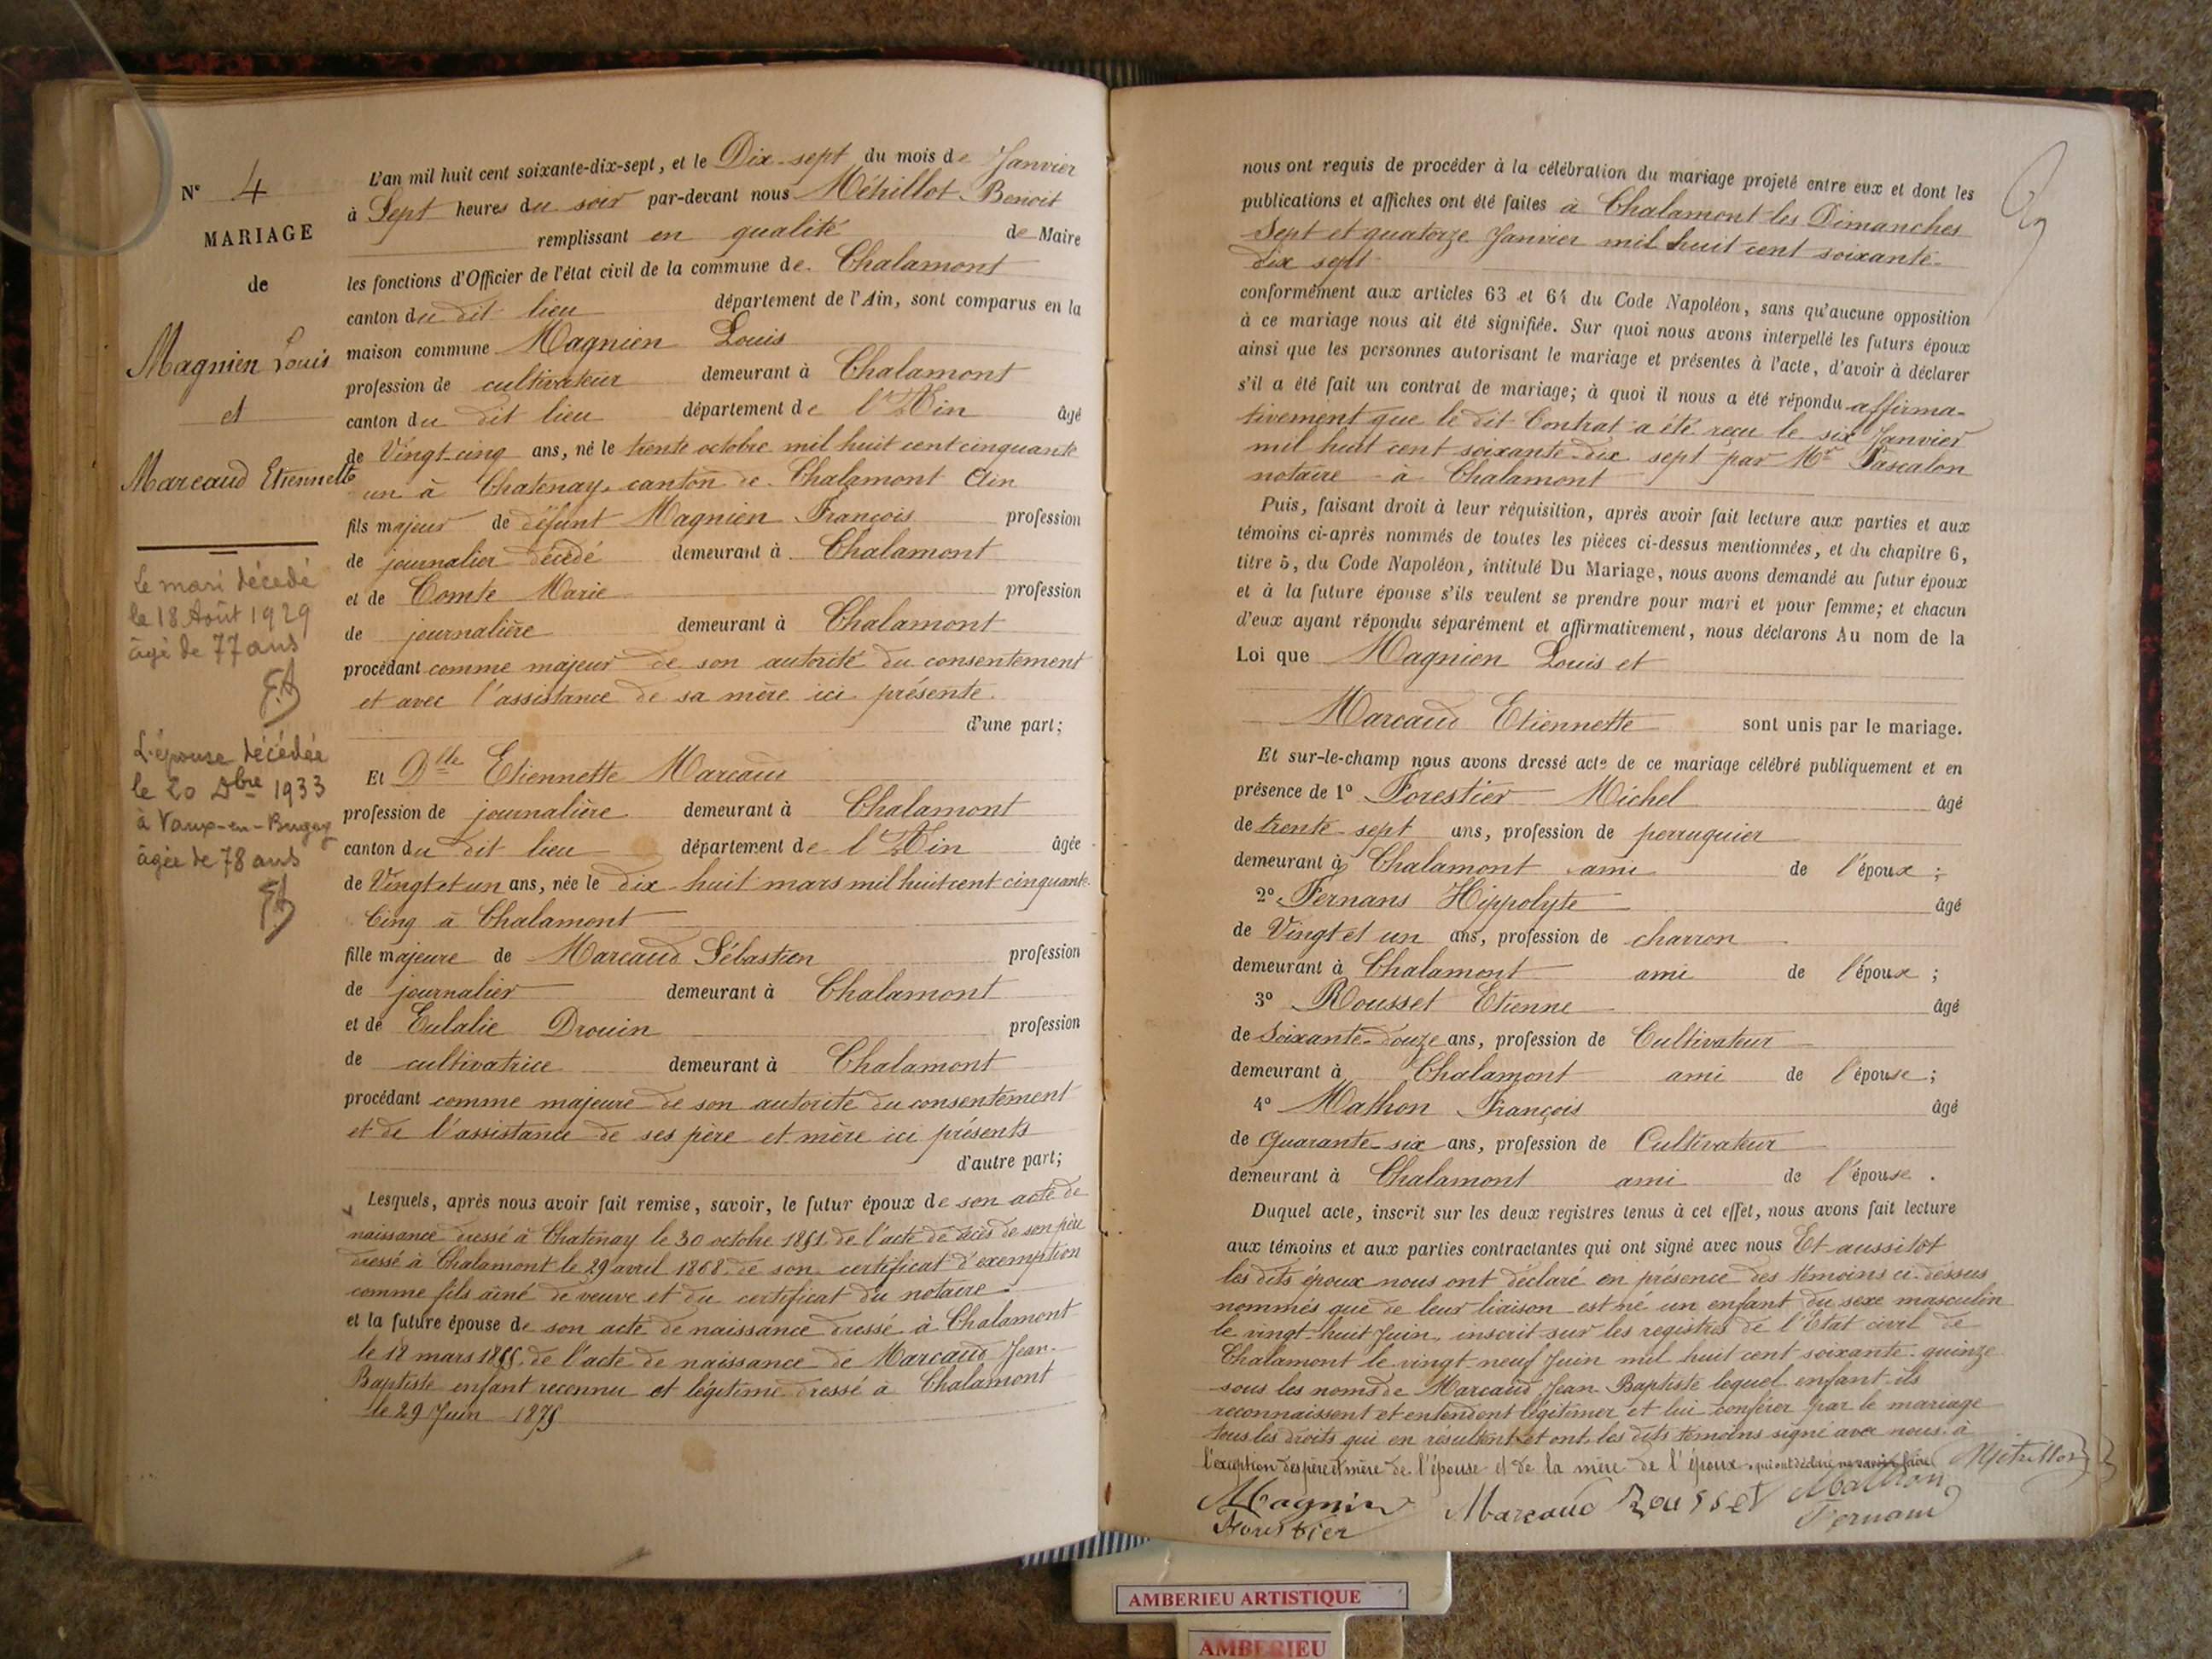 N° 4
MARIAGE
de
Magnien Louis
et
Marcaud Etiennette
Le mari décédé
le 18 Août 1929
âgé de 77 ans
L'épouse décédée
le 20 Dbre 1933
à Vaux-en-Bugey
âgée de 78 ans
L'an mil huit cent soixante-dix-sept, et le Dix-sept du mois de Janvier
à Sept heures du soir par-devant nous Métrillot Benoit
remplissant en qualité de Maire
les fonctions d'Officier de l'état civil de la commune de Chalamont
canton du dit lieu département de l'Ain, sont comparus en la
maison commune Magnien Louis
profession de cultivateur demeurant à Chalamont
canton du dit lieu département de l'Ain âgé
de Vingt-cinq ans, né le trente octobre mil huit cent cinquante
un à Chatenay, canton de Chalamont Ain
fils majeur de défunt Magnien François profession
de journalier décédé demeurant à Chalamont
et de Comte Marie profession
de journalière demeurant à Chalamont
procédant comme majeur de son autorité du consentement
et avec l'assistance de sa mère ici présente.
d'une part;
Et Dlle Etiennette Marcaud
profession de journalière demeurant à Chalamont
canton du dit lieu département de l'Ain âgée
de Vingt et un ans, née le dix-huit mars mil huit cent cinquante
Cinq à Chalamont
fille majeure de Marcaud Sébastien profession
de journalier demeurant à Chalamont
et de Eulalie Drouin profession
de cultivatrice demeurant à Chalamont
procédant comme majeure de son autorité du consentement
et de l'assistance de ses père et mère ici présents
d'autre part;
Lesquels, après nous avoir fait remise, savoir, le futur époux de son acte de
naissance dressé à Chatenay le 30 octobre 1851 de l'acte de décès de son père
dressé à Chalamont le 29 avril 1868, de son certificat d'exemption
comme fils aîné de veuve et du certificat du notaire
et la future épouse de son acte de naissance dressé à Chalamont
le 18 mars 1855, de l'acte de naissance de Marcaud Jean-
Baptiste enfant reconnu et légitimé dressé à Chalamont
le 29 Juin 1875
nous ont requis de procéder à la célébration du mariage projeté entre eux et dont les
publications et affiches ont été faites à Chalamont les Dimanches
Sept et quatorze Janvier mil huit cent soixante-
dix sept
conformément aux articles 63 et 64 du Code Napoléon, sans qu'aucune opposition
à ce mariage nous ait été signifiée. Sur quoi nous avons interpellé les futurs époux
ainsi que les personnes autorisant le mariage et présentes à l'acte, d'avoir à déclarer
s'il a été fait un contrat de mariage; à quoi il nous a été répondu affirma-
tivement que le dit Contrat a été reçu le six Janvier
mil huit cent soixante-dix sept par Mr Pascalon
notaire à Chalamont
Puis, faisant droit à leur réquisition, après avoir fait lecture aux parties et aux
témoins ci-après nommés de toutes les pièces ci-dessus mentionnées, et du chapitre 6,
titre 5, du Code Napoléon, intitulé Du Mariage, nous avons demandé au futur époux
et à la future épouse s'ils veulent se prendre pour mari et pour femme; et chacun
d'eux ayant répondu séparément et affirmativement, nous déclarons Au nom de la
Loi que Magnien Louis et
Marcaud Etiennette sont unis par le mariage.
Et sur-le-champ nous avons dressé acte de ce mariage célébré publiquement et en
présence de 1° Forestier Michel âgé
de trente-sept ans, profession de perruquier
demeurant à Chalamont ami de l'époux;
2° Fernans Hippolyte âgé
de Vingt et un ans, profession de charron
demeurant à Chalamont ami de l'époux;
3° Rousset Etienne âgé
de soixante-douze ans, profession de Cultivateur
demeurant à Chalamont ami de l'épouse;
4° Mathon François âgé
de quarante-six ans, profession de Cultivateur
demeurant à Chalamont ami de l'épouse.
Duquel acte, inscrit sur les deux registres tenus à cet effet, nous avons fait lecture
aux témoins et aux parties contractantes qui ont signé avec nous Et aussitôt
les dits époux nous ont déclaré en présence des témoins ci-dessus
nommés que de leur liaison est né un enfant du sexe masculin
le vingt-huit Juin, inscrit sur les registres de l'Etat civil de
Chalamont le vingt-neuf Juin mil huit cent soixante-quinze
sous les noms de Marcaud Jean Baptiste lequel enfant ils
reconnaissent et entendent légitimer et lui conférer par le mariage
tous les droits qui en résultent et ont les dits témoins signé avec nous à
l'exception des père et mère de l'épouse et de la mère de l'époux qui ont déclaré ne savoir faire Métrillot
Magnien Marcaud Rousset Mathon
Forestier Fernans
AMBERIEU ARTISTIQUE
AMBERIEU